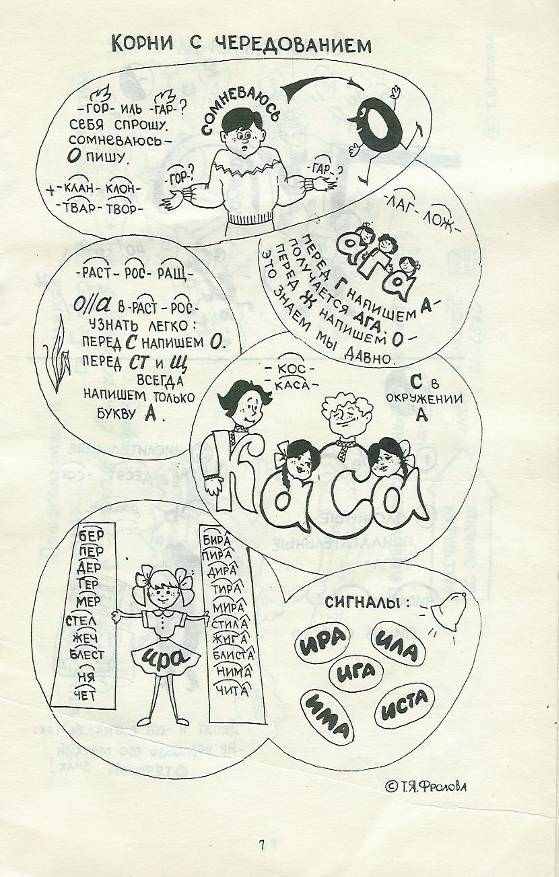 КОРНИ С ЧЕРЕДОВАНИЕМ
-ГОР- ИЛЬ -ГАР-?
СЕБЯ СПРОШУ.
СОМНЕВАЮСЬ-
О ПИШУ.
+-КЛАН- КЛОН-
-ТВАР- ТВОР-
СОМНЕВАЮСЬ
-ГОР-?
-ГАР-?
О
-ЛАГ- ЛОЖ-
АГА
ПЕРЕД Г НАПИШЕМ А-
ПОЛУЧАЕТСЯ АГА.
ПЕРЕД Ж НАПИШЕМ О-
ЭТО ЗНАЕМ МЫ ДАВНО.
-РАСТ- РОС- РАЩ-
О//а В -РАСТ- РОС-
УЗНАТЬ ЛЕГКО:
ПЕРЕД С НАПИШЕМ О.
ПЕРЕД СТ И Щ
ВСЕГДА
НАПИШЕМ ТОЛЬКО
БУКВУ А.
-КОС-
КАСА-
С В
ОКРУЖЕНИИ
А
КаСа
БЕР
ПЕР
ДЕР
ТЕР
МЕР
СТЕЛ
ЖЕЧ
БЛЕСТ
НЯ
ЧЕТ
ира
БИРА
ПИРА
ДИРА
ТИРА
МИРА
СТИЛА
ЖИГА
БЛИСТА
НИМА
ЧИТА
СИГНАЛЫ:
ИРА
ИЛА
ИГА
ИМА
ИСТА
© Т.Я.ФРОЛОВА
7